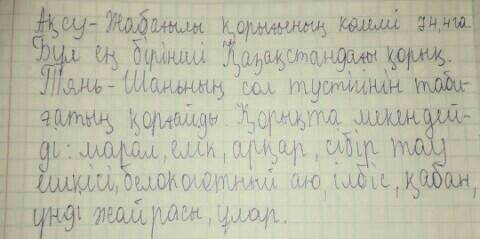 Ақсу-Жабағылы қорығының көлемі 74,4га
Бұл ең бірінші Қазақстандағы қорық.
Тянь-Шаньның сол түстігінін таби-
ғатың қорғайды Қорықта мекендей-
ді: марал, елік, арқар, сібір тау
ешкісі, белокоготный аю, ілбіс, қабан,
үнді жайрасы, ұлар.